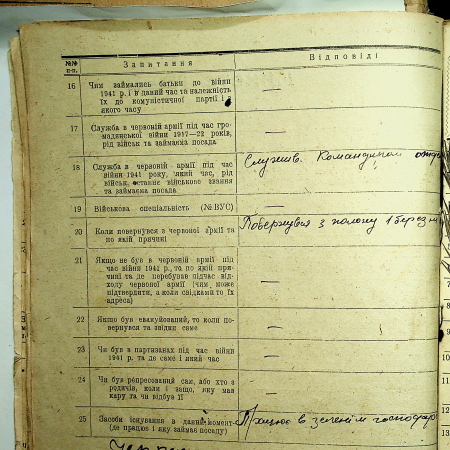 №№ п-п. Запитання Відповіді
16 Чим займались батьки до війни
1941 р. і в даний час та належність
їх до комуністичної партії і з
якого часу —
17 Служба в червоній армії під час гро-
мадянської війни 1917—22 років,
рід військ та займаєма посада —
18 Служба в червоній армії під час
війни 1941 року, який час, рід
військ, останнє військове звання
та займаєма посада
Служив. Командиром
19 Військова спеціальність (№ ВУС) —
20 Коли повернувся з червоної армії та
по якій причині
Повернувся з полону 1 березня
21 Якщо не був в червоній армії під
час війни 1941 р., то по якій при-
чині та де перебував підчас від-
ходу червоної армії (чим може
підтвердити, а коли свідками то їх
адреса) —
22 Якщо був евакуйований, то коли по-
вернувся та звідки саме —
23 Чи був в партизанах під час війни
1941 р. та де саме і який час —
24 Чи був репресований сам, або хто з
родичів, коли і защо, яку мав
кару та чи відбув її —
25 Засоби існування в даний момент
(де працює і яку займає посаду)
Працює в зеленім господар